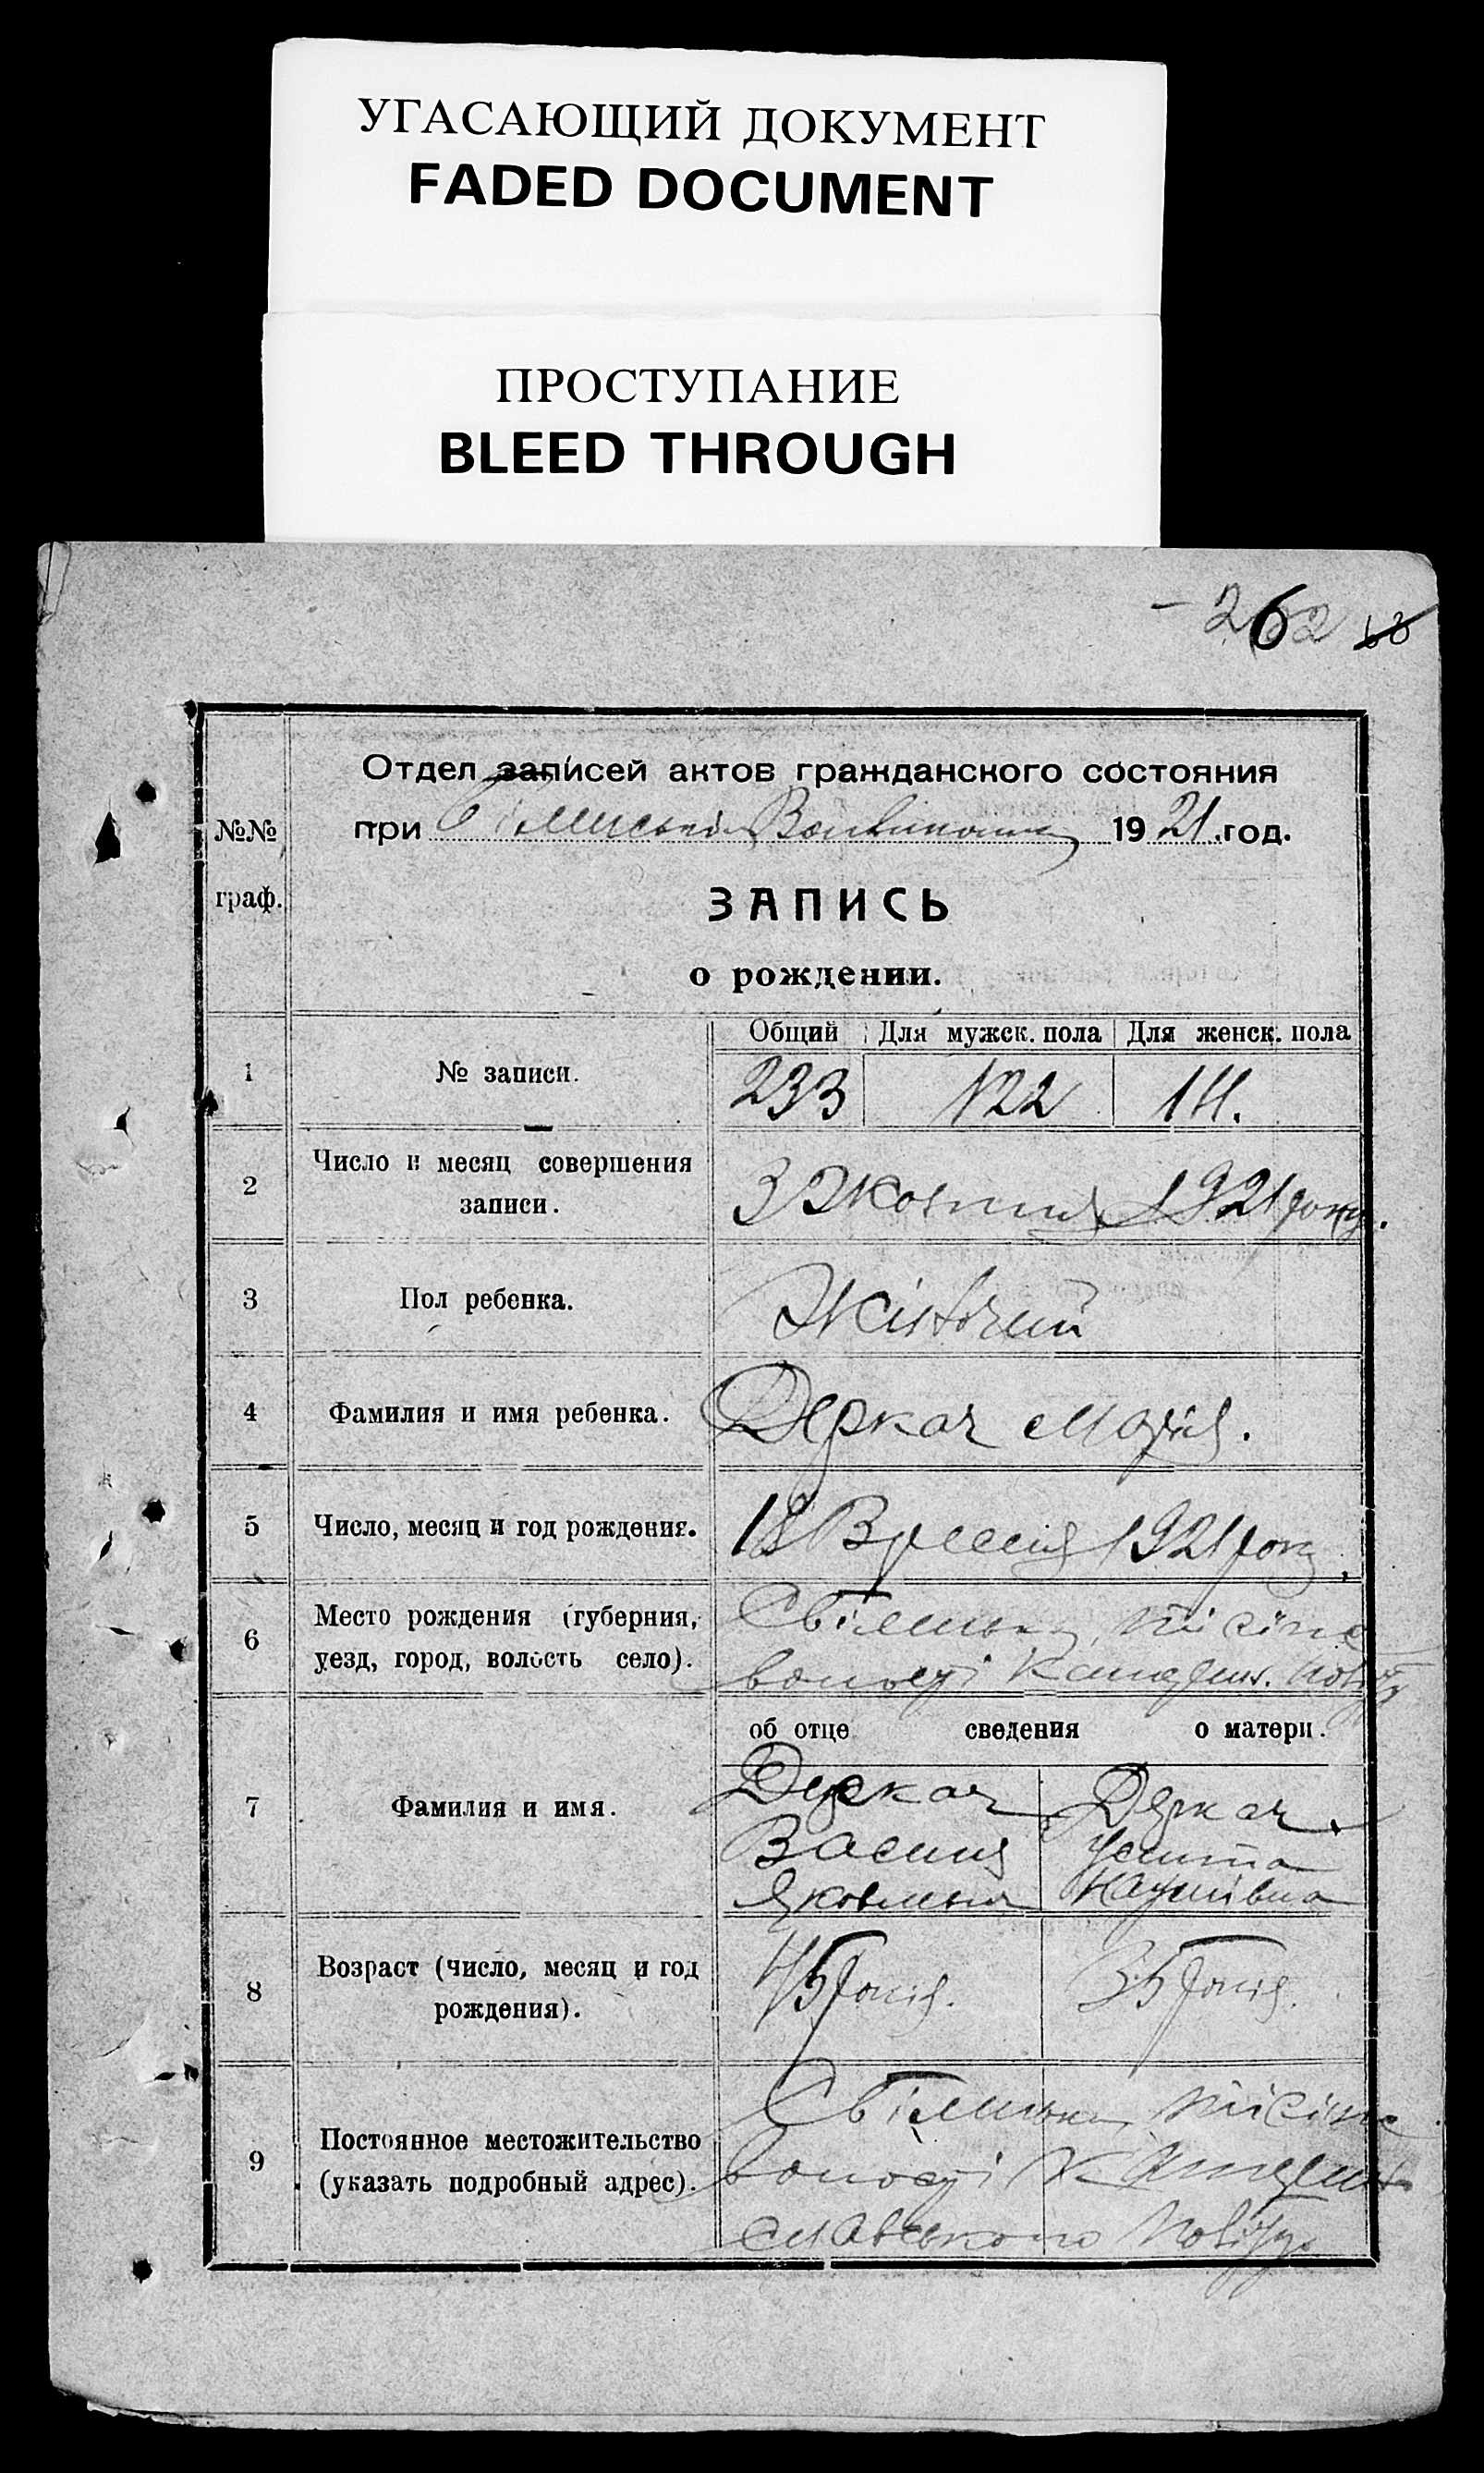 УГАСАЮЩИЙ ДОКУМЕНТ
FADED DOCUMENT
ПРОСТУПАНИЕ
BLEED THROUGH
262
Отдел записей актов гражданского состояния
№№ при 1921 год.
граф.
ЗАПИСЬ
о рождении.
Общий Для мужск. пола Для женск. пола
1 № записи. 233 122 111.
2 Число и месяц совершения
записи. 3 Жовтня 1921 року.
3 Пол ребенка. Жіночий
4 Фамилия и имя ребенка. Деркач Марія.
5 Число, месяц и год рождения. 18 Вресня 1921 року,
6 Место рождения (губерния,
уезд, город, волость село).
волости
об отце сведения о матери.
7 Фамилия и имя. Деркач Деркач
Василь
Яковлевич Наумівна
8 Возраст (число, месяц и год
рождения). 45 років. 35 років.
9 Постоянное местожительство
(указать подробный адрес). волости
славського Повіту.